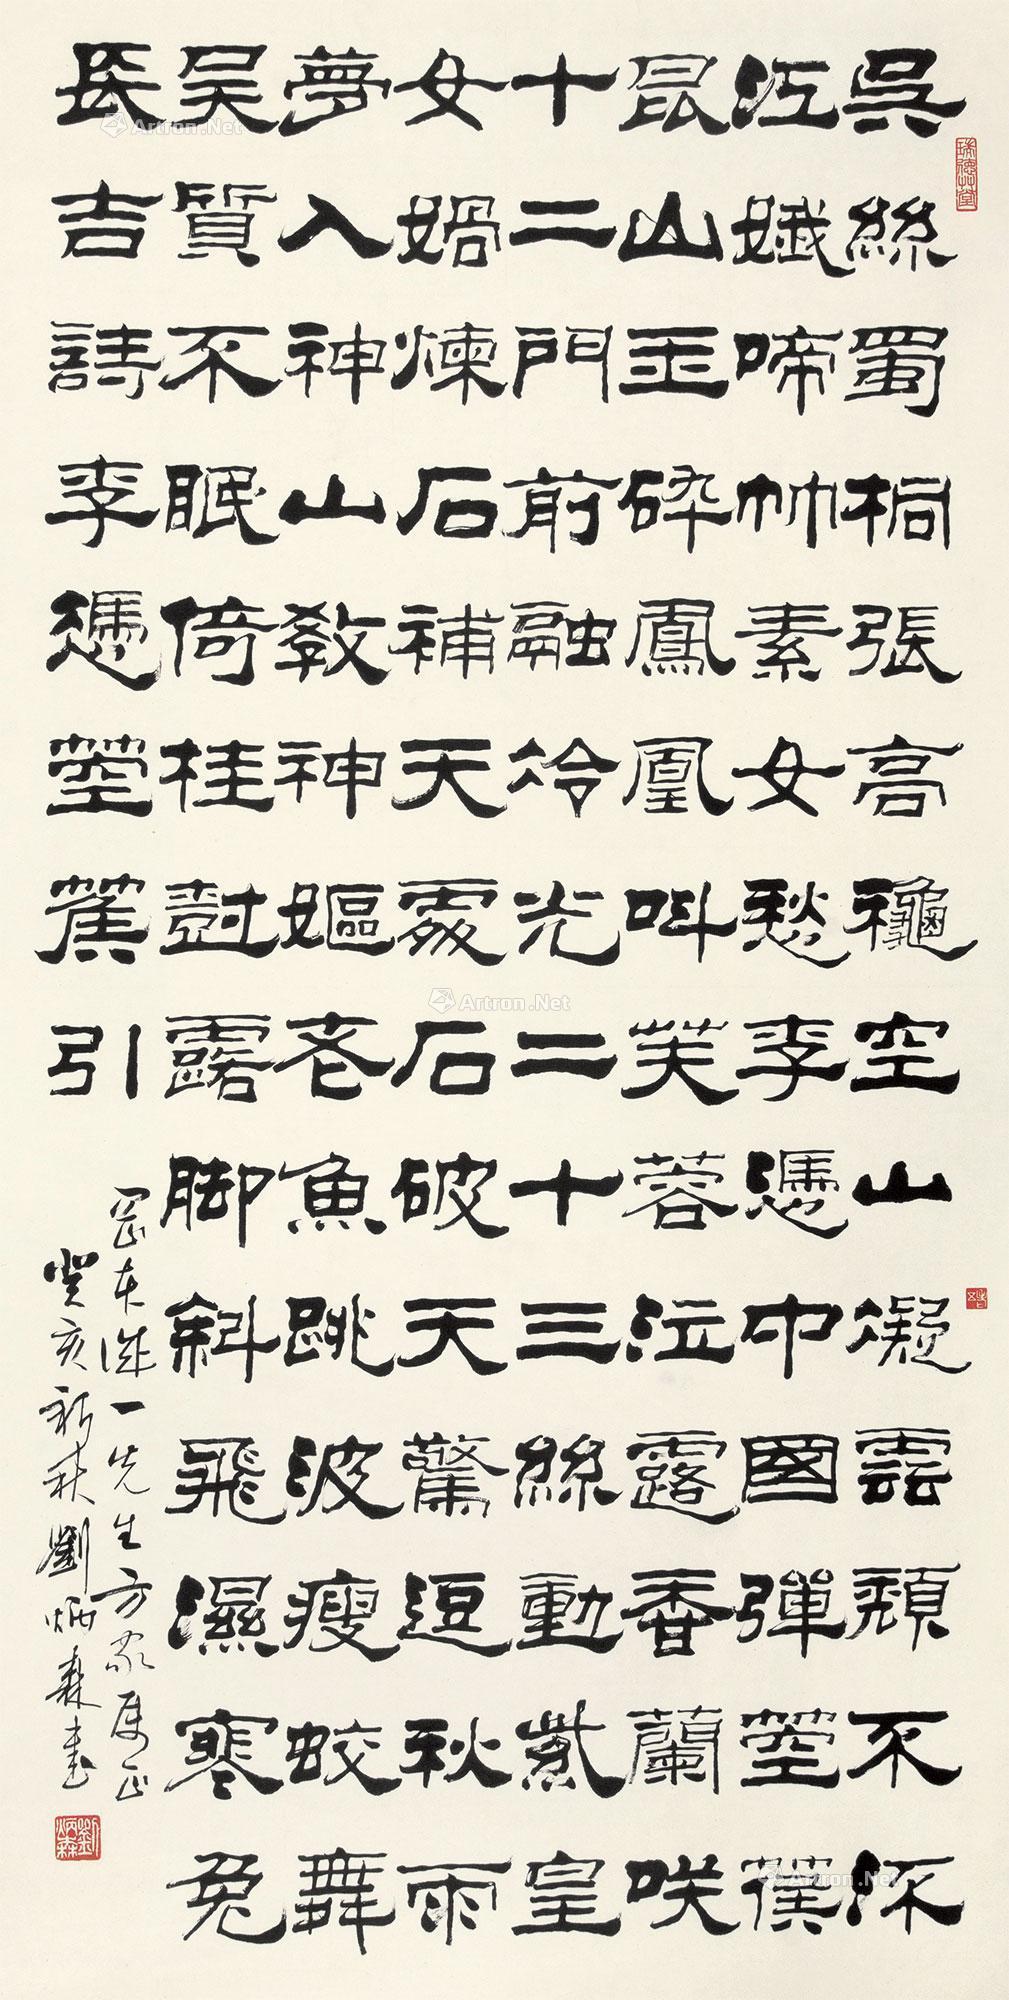 吳絲蜀桐張高穐空山凝雲頹不流
江娥啼竹素女愁李憑中國彈箜篌
昆山玉碎鳳凰叫芙蓉泣露香蘭咲
十二門前融冷光二十三絲動紫皇
女媧煉石補天處石破天驚逗秋雨
夢入神山教神嫗老魚跳波瘦蛟舞
吳質不眠倚桂樹露脚斜飛濕寒兔
長吉詩李憑箜篌引
岡本誠一先生方家屬正
癸亥新秋劉炳森書
劉炳森
Artron.Net
Artron.Net
Artron.Net